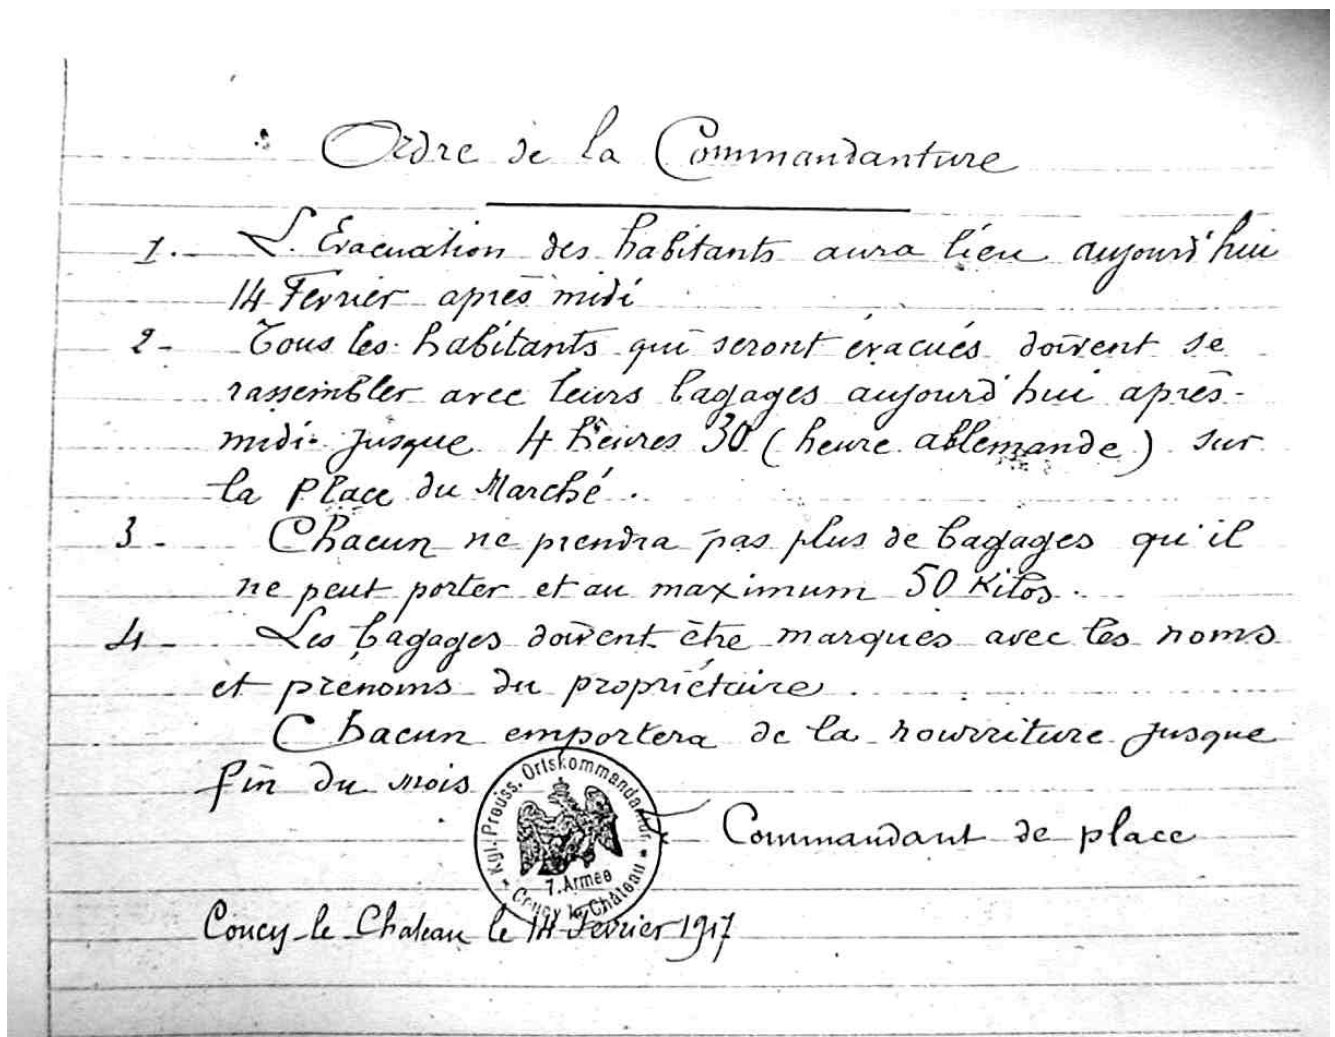 Ordre de la Commandanture
1. L'Evacuation des habitants aura lieu aujourd'hui
14 Fevrier après midi
2 - Tous les habitants qui seront évacués doivent se
rassembler avec leurs bagages aujourd'hui après-
midi jusque 4 heures 30 (heure allemande) sur
la Place du Marché.
3 - Chacun ne prendra pas plus de bagages qu'il
ne peut porter et au maximum 50 Kilos.
4 - Les bagages doivent être marqués avec les noms
et prénoms du propriétaire.
Chacun emportera de la nourriture jusque
fin du mois
Kgl. Preuss. Ortskommandantur
7. Armee
Coucy le Château
Le Commandant de place
Coucy-le-Chateau le 14 Fevrier 1917